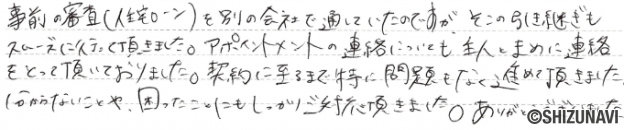 事前の審査(住宅ローン)を別の会社で通していたのですが、そこの引き継ぎも
スムーズに行って頂きました。アポイントメントの連絡についても主人とまめに連絡
をとって頂いておりました。契約に至るまで特に問題もなく進めて頂きました。
分からないことや、困ったことにもしっかりご対応頂きました。ありがとうございました
©SHIZUNAVI